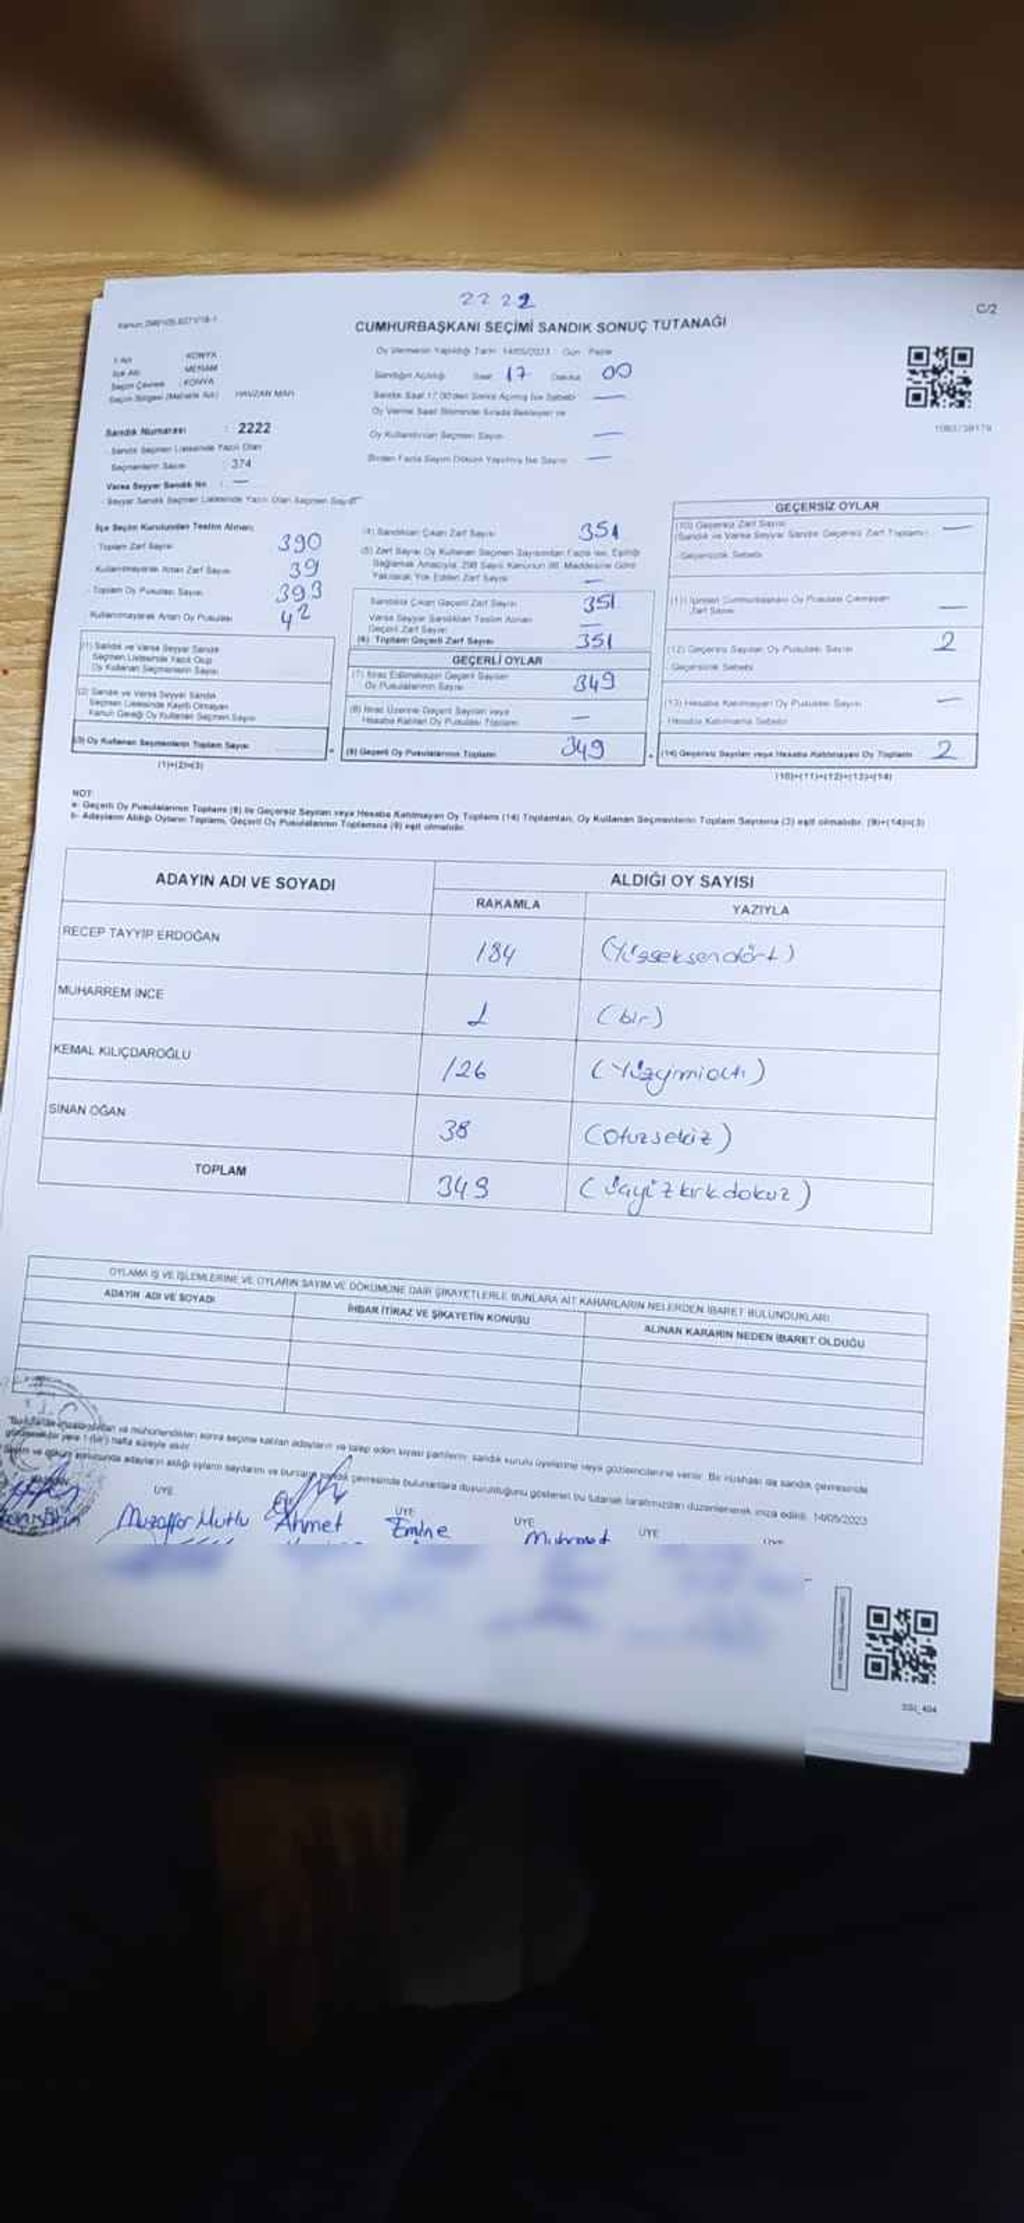 2222
C/2
CUMHURBAŞKANI SEÇİMİ SANDIK SONUÇ TUTANAĞI
Oy Vermenin Yapıldığı Tarih 14/05/2023 Gün Pazar
İl Adı KONYA
İlçe Adı MERAM
Seçim Çevresi KONYA
Seçim Bölgesi (Mahalle Adı) HAVZAN MAH
Sandığın Açıldığı Saat 17 Dakika 00
Sandık Saat 17.00'den Sonra Açılmış İse Sebebi —
Oy Verme Saati Bitiminde Sırada Bekleyen ve
Oy Kullandırılan Seçmen Sayısı —
Birden Fazla Sayım Döküm Yapılmış İse Sayısı —
Sandık Numarası : 2222
Sandık Seçmen Listesinde Yazılı Olan
Seçmenlerin Sayısı : 374
Varsa Seyyar Sandık No : —
Seyyar Sandık Seçmen Listesinde Yazılı Olan Seçmen Sayısı
İlçe Seçim Kurulundan Teslim Alınan;
Toplam Zarf Sayısı 390
Kullanılmayarak Artan Zarf Sayısı 39
Toplam Oy Pusulası Sayısı 393
Kullanılmayarak Artan Oy Pusulası 42
(1) Sandık ve Varsa Seyyar Sandık
Seçmen Listesinde Yazılı Olup
Oy Kullanan Seçmenlerin Sayısı
(2) Sandık ve Varsa Seyyar Sandık
Seçmen Listesinde Kayıtlı Olmayan
Kanun Gereği Oy Kullanan Seçmen Sayısı
(3) Oy Kullanan Seçmenlerin Toplam Sayısı
(1)+(2)=(3)
(4) Sandıktan Çıkan Zarf Sayısı 351
(5) Zarf Sayısı Oy Kullanan Seçmen Sayısından Fazla ise, Eşitliği
Sağlamak Amacıyla, 298 Sayılı Kanunun 98. Maddesine Göre
Yakılarak Yok Edilen Zarf Sayısı —
Sandıkta Çıkan Geçerli Zarf Sayısı 351
Varsa Seyyar Sandıktan Teslim Alınan
Geçerli Zarf Sayısı —
(6) Toplam Geçerli Zarf Sayısı 351
GEÇERLİ OYLAR
(7) İtiraz Edilmeksizin Geçerli Sayılan
Oy Pusulalarının Sayısı 349
(8) İtiraz Üzerine Geçerli Sayılan veya
Hesaba Katılan Oy Pusulası Toplamı —
(9) Geçerli Oy Pusulalarının Toplamı 349
GEÇERSİZ OYLAR
(10) Geçersiz Zarf Sayısı
(Sandık ve Varsa Seyyar Sandık Geçersiz Zarf Toplamı) —
Geçersizlik Sebebi
(11) İçinden Cumhurbaşkanı Oy Pusulası Çıkmayan
Zarf Sayısı —
(12) Geçersiz Sayılan Oy Pusulası Sayısı 2
Geçersizlik Sebebi
(13) Hesaba Katılmayan Oy Pusulası Sayısı —
Hesaba Katılmama Sebebi
(14) Geçersiz Sayılan veya Hesaba Katılmayan Oy Toplamı 2
(10)+(11)+(12)+(13)=(14)
NOT:
a- Geçerli Oy Pusulalarının Toplamı (9) ile Geçersiz Sayılan veya Hesaba Katılmayan Oy Toplamı (14) Toplamları, Oy Kullanan Seçmenlerin Toplam Sayısına (3) eşit olmalıdır. (9)+(14)=(3)
b- Adayların Aldığı Oyların Toplamı, Geçerli Oy Pusulalarının Toplamına (9) eşit olmalıdır.
ADAYIN ADI VE SOYADI
ALDIĞI OY SAYISI
RAKAMLA YAZIYLA
RECEP TAYYİP ERDOĞAN 184 (Yüzseksendört)
MUHARREM İNCE 1 (bir)
KEMAL KILIÇDAROĞLU 126 (Yüzyirmialtı)
SİNAN OĞAN 38 (Otuzsekiz)
TOPLAM 349 (üçyüzkırkdokuz)
OYLAMA İŞ VE İŞLEMLERİNE VE OYLARIN SAYIM VE DÖKÜMÜNE DAİR ŞİKAYETLERLE BUNLARA AİT KARARLARIN NELERDEN İBARET BULUNDUKLARI
ADAYIN ADI VE SOYADI
İHBAR İTİRAZ VE ŞİKAYETİN KONUSU
ALINAN KARARIN NEDEN İBARET OLDUĞU
ve mühürlendikten sonra seçime katılan adayların ve talep eden siyasi partilerin sandık kurulu üyelerine veya gözlemcilerine verilir. Bir nüshası da sandık çevresinde
1 (bir) hafta süreyle asılır.
Sayım ve döküm sonucunda adayların aldığı oyların sayılarını ve bunların sandık çevresinde bulunanlara duyurulduğunu gösteren bu tutanak tarafımızdan düzenlenerek imza edildi. 14/05/2023
ÜYE ÜYE ÜYE ÜYE
Muzaffer Mutlu Ahmet Emine